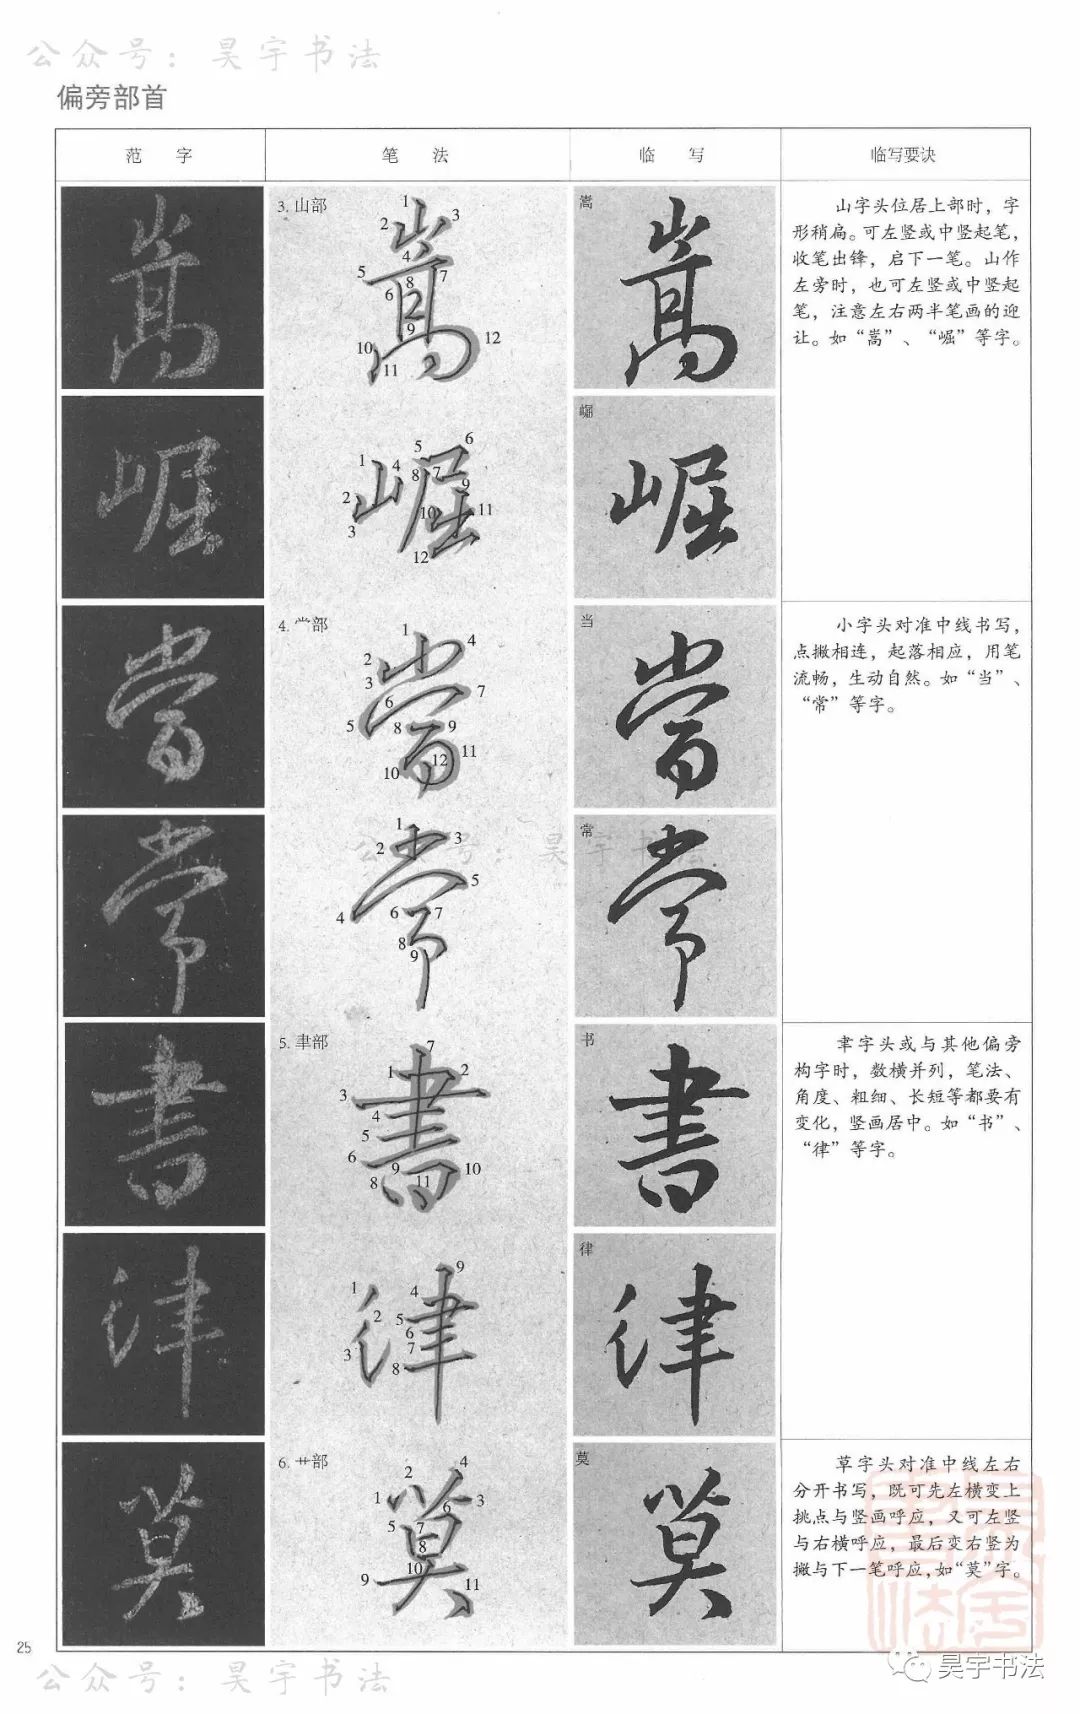 公众号：昊宇书法
偏旁部首
范 字
笔 法
临 写
临写要诀
3. 山部
1
2
3
4
5
6
7
8
9
10
11
12
嵩
山字头位居上部时，字
形稍扁。可左竖或中竖起笔，
收笔出锋，启下一笔。山作
左旁时，也可左竖或中竖起
笔，注意左右两半笔画的迎
让。如“嵩”、“崛”等字。
1
2
3
4
5
6
7
8
9
10
11
12
崛
4. ⺌部
1
2
3
4
5
6
7
8
9
10
11
12
当
小字头对准中线书写，
点撇相连，起落相应，用笔
流畅，生动自然。如“当”、
“常”等字。
1
2
3
4
5
6
7
8
9
常
公众号：昊宇书法
5. 聿部
1
2
3
4
5
6
7
8
9
10
11
书
聿字头或与其他偏旁
构字时，数横并列，笔法、
角度、粗细、长短等都要有
变化，竖画居中。如“书”、
“律”等字。
1
2
3
4
5
6
7
8
9
律
6. 艹部
1
2
3
4
5
6
7
8
9
10
11
莫
草字头对准中线左右
分开书写，既可先左横变上
挑点与竖画呼应，又可左竖
与右横呼应，最后变右竖为
撇与下一笔呼应，如“莫”字。
25
公众号：昊宇书法
昊宇书法